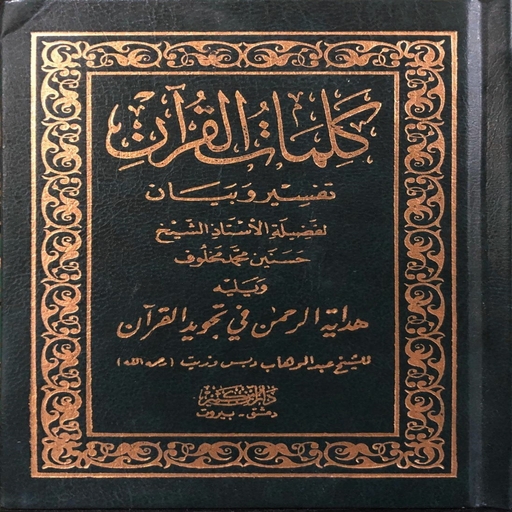 كلمات القرآن
تفسير وبيان
لفضيلة الأستاذ الشيخ
حسنين محمد مخلوف
ويليه
هداية الرحمن في تجويد القرآن
للشيخ عبد الوهاب دبس وزيت (رحمه الله)
دمشق - بيروت